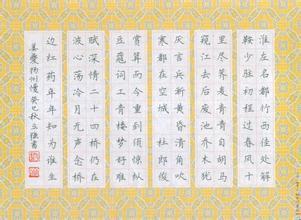 淮左名都竹西佳处解
鞍少驻初程过春风十
里尽荠麦青青自胡马
窥江去后废池乔木犹
厌言兵渐黄昏清角吹
寒都在空城 杜郎俊
赏算而今重到须惊纵
豆蔻词工青楼梦好难
赋深情二十四桥仍在
波心荡冷月无声念桥
边红药年年知为谁生
姜夔扬州慢癸巳秋书